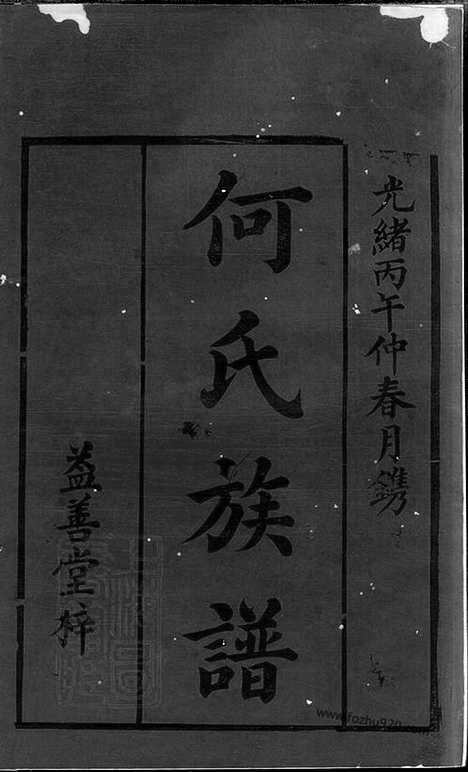 光緒丙午仲春月鐫
何氏族譜
益善堂梓
www.fozhu920